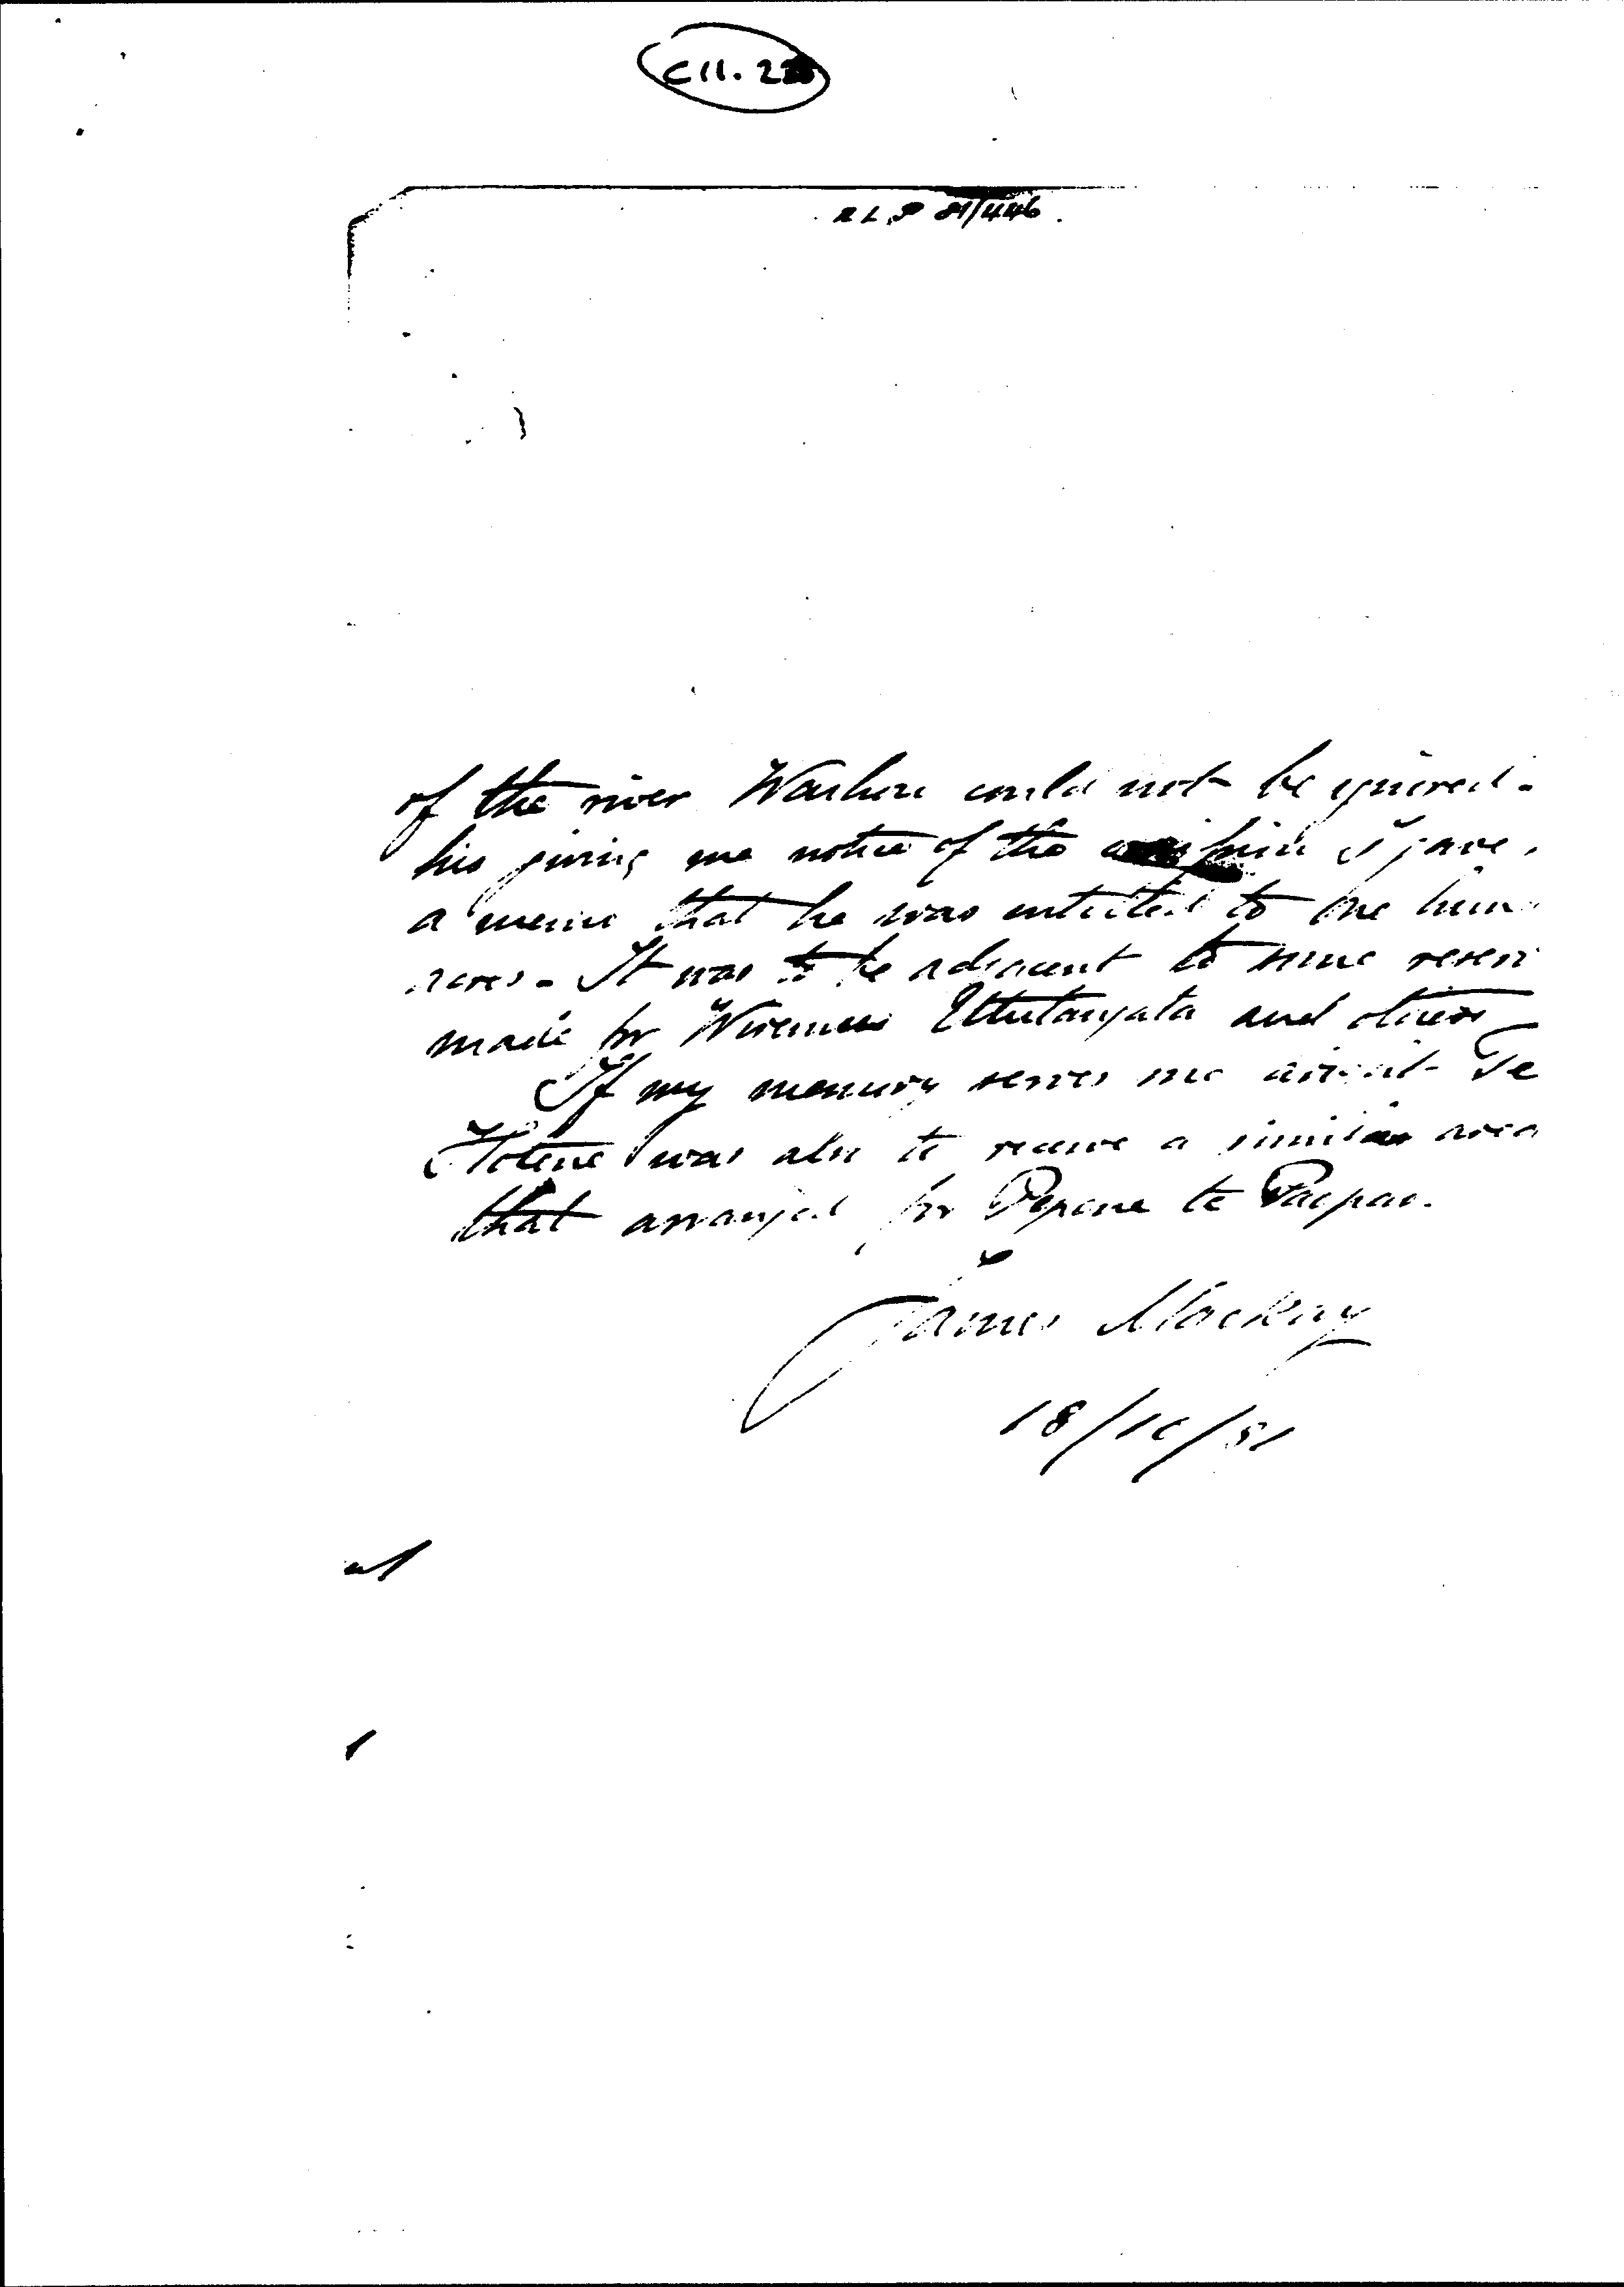 C11.
RLP 81/446.
of the river could not be ignored.
his giving me notice of the I gave
a memo that he was entitled to one hun
acres. It was to be adjacent to some reser
made for Wiremu and others
If my memory serves me Te
Hotene was also to receive a similar area
that arranged for Pepene te Paepae.
James Mackay
18/10/81